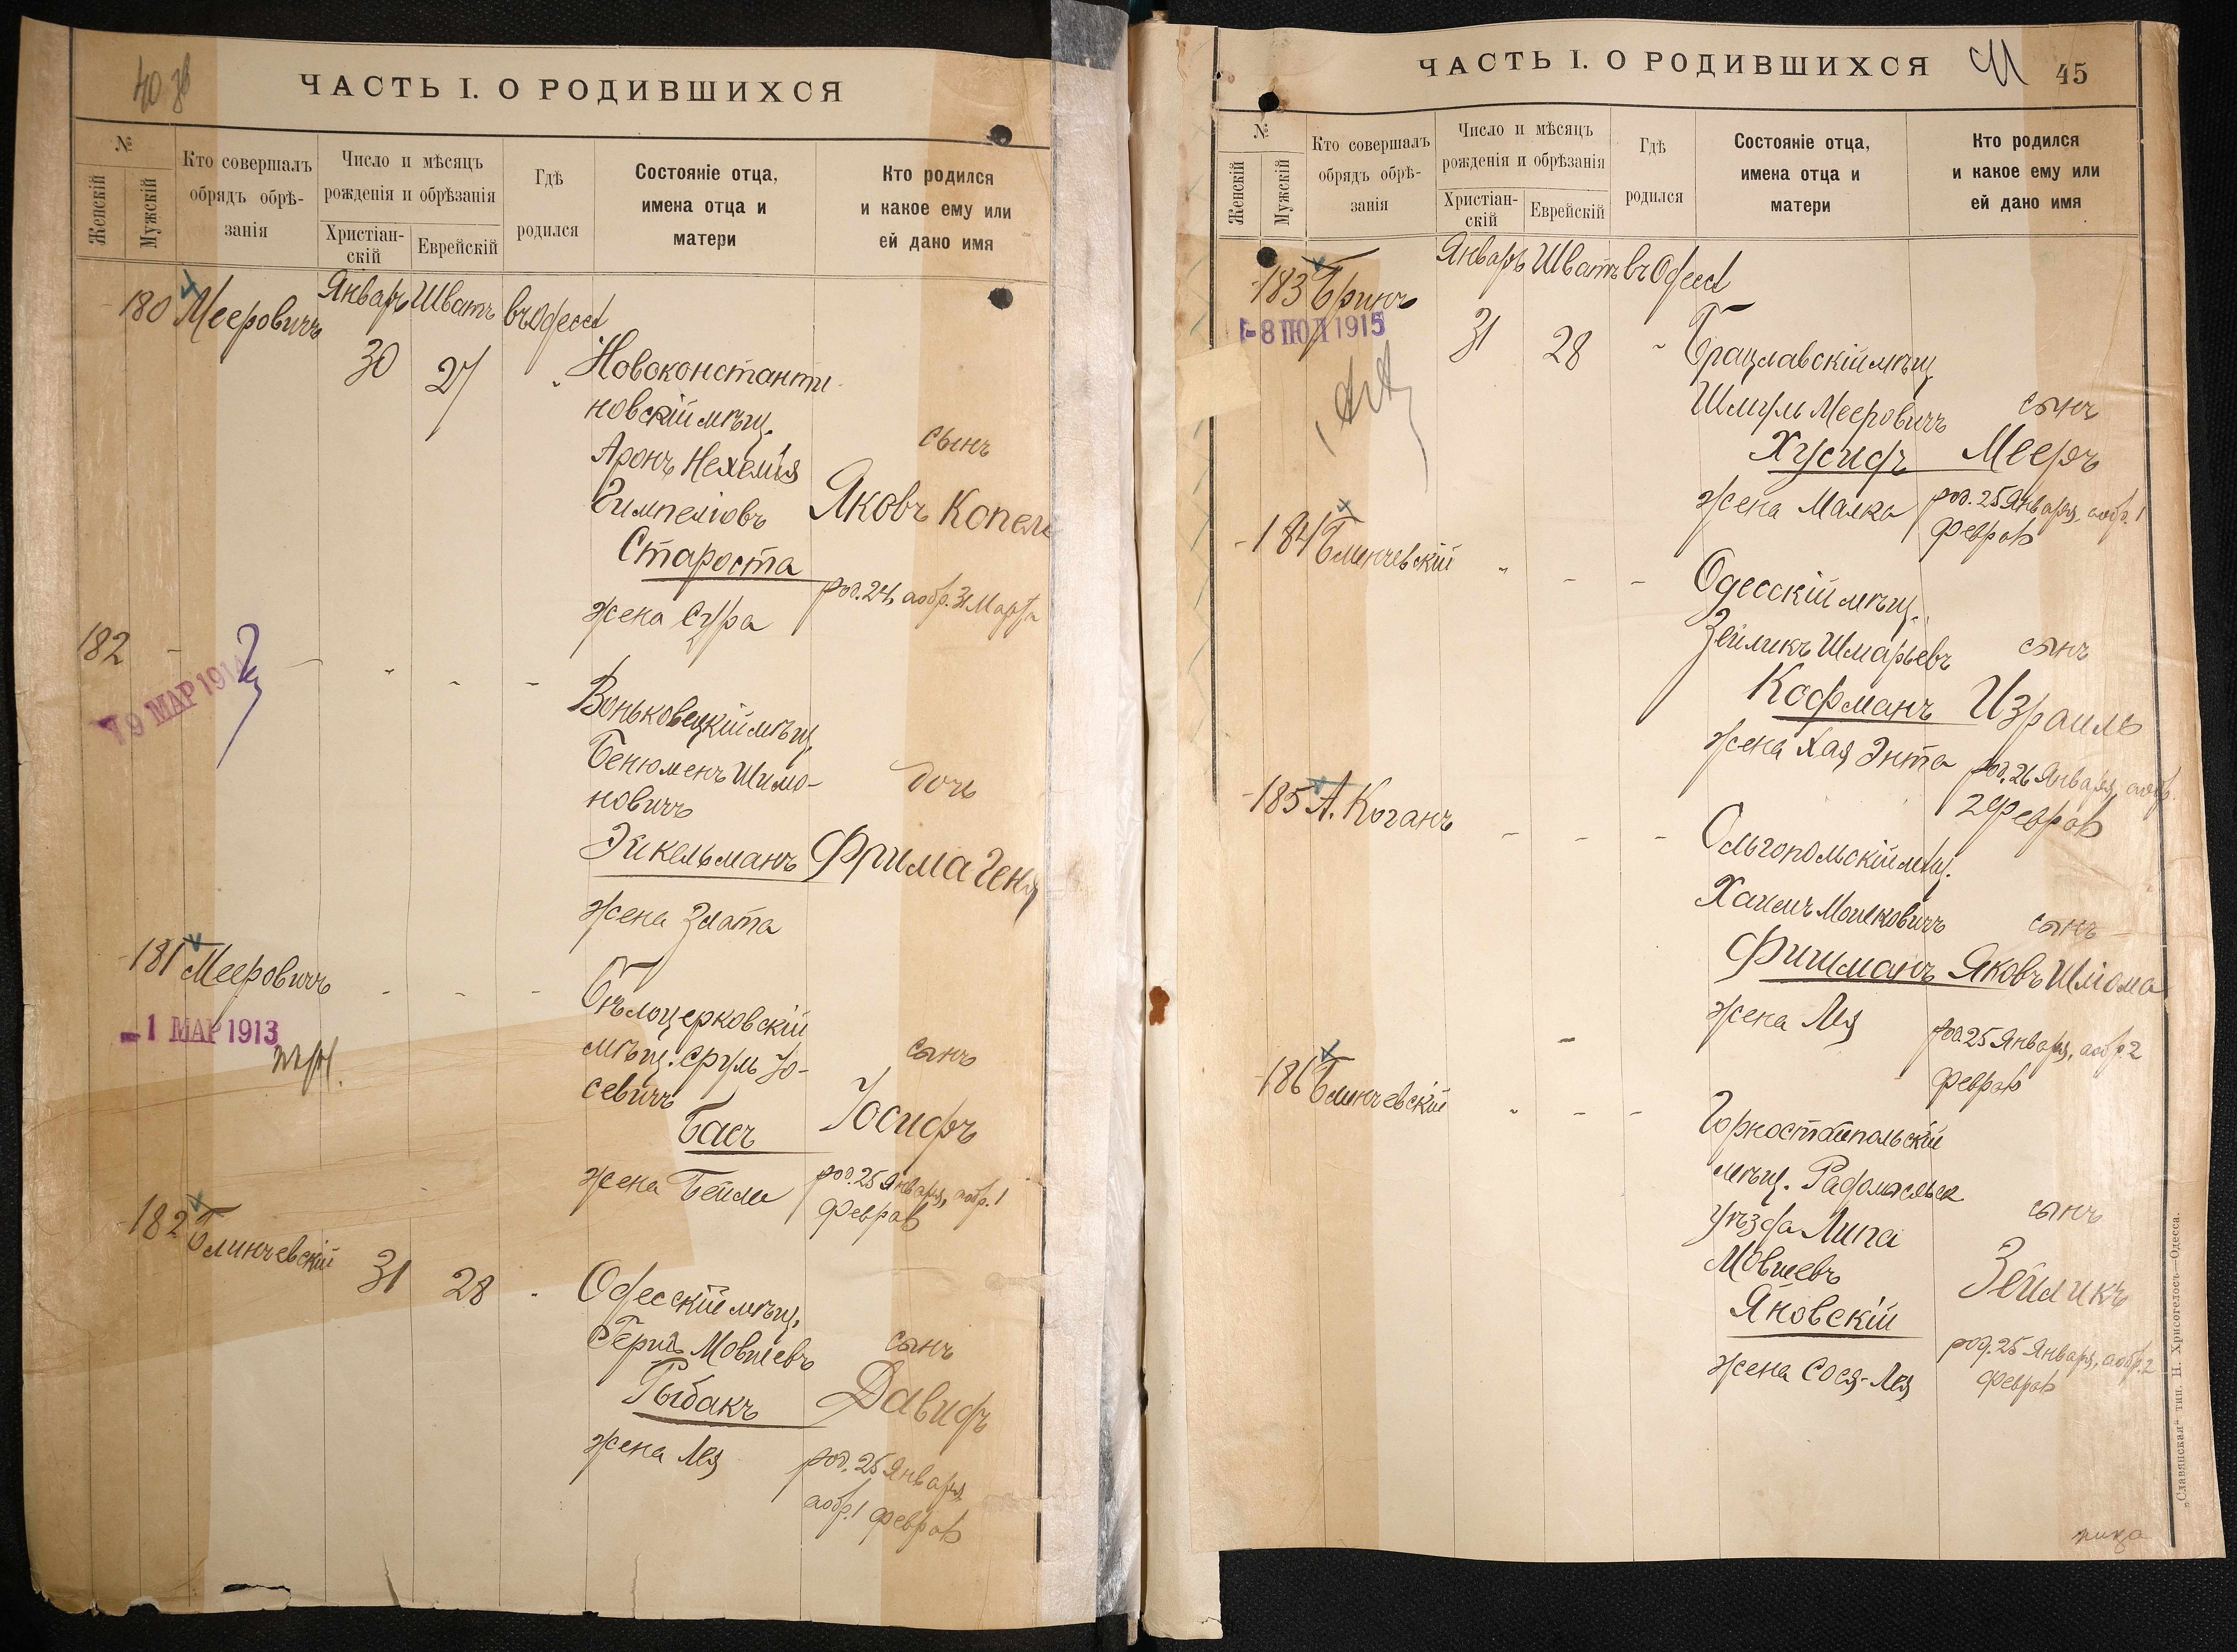 40 зв
ЧАСТЬ I. О РОДИВШИХСЯ
№
Женскій
Мужскій
Кто совершалъ
обрядъ обрѣ-
занія
Число и мѣсяцъ
рожденія и обрѣзанія
Христіан-
скій
Еврейскій
Гдѣ
родился
Состояніе отца,
имена отца и
матери
Кто родился
и какое ему или
ей дано имя
180 Мееровичъ Январь Шватъ въ Одессѣ
30 27 " Новоконстанти
новскій мѣщ.
Аронъ Нехемія
Гимпеліовъ
Староста
жена Сура
сынъ
Яковъ Копель
род. 24, а обр. 31 Марта
182 - - - - -
19 МАР 191
Воньковецкій мѣщ.
Бенюменъ Шимо-
новичъ
Экельманъ
жена Злата
дочь
Фрима Геня
181 Мееровичъ - - -
-1 МАР 1913
Бѣлоцерковскій
мѣщ. Сруль Іо-
севичъ
Басъ
жена Бейла
сынъ
Іосифъ
род. 25 Января, а обр. 1
Февраля
182 Блинчевскій 31 28 "
Одесскій мѣщ.
Гершъ Мовшевъ
Рыбакъ
жена Лея
сынъ
Давидъ
род. 25 Января,
а обр. 1 Февраля
ЧАСТЬ I. О РОДИВШИХСЯ
41 45
№
Женскій
Мужскій
Кто совершалъ
обрядъ обрѣ-
занія
Число и мѣсяцъ
рожденія и обрѣзанія
Христіан-
скій
Еврейскій
Гдѣ
родился
Состояніе отца,
имена отца и
матери
Кто родился
и какое ему или
ей дано имя
183 Бринъ Январь Шватъ въ Одессѣ
-8 ІЮЛ 1915
31 28 " Брацлавскій мѣщ.
Шмуль Мееровичъ
Хусидъ
жена Малка
сынъ
Мееръ
род. 25 Января, а обр. 1
Февраля
184 Блинчевскій " - -
Одесскій мѣщ.
Зейликъ Шмарьевъ
Кофманъ
жена Хая Энта
сынъ
Израиль
род. 26 Января, а обр.
2 Февраля
185 А. Коганъ - - -
Ольгопольскій мѣщ.
Хаимъ Мошковичъ
Фишманъ
жена Лея
сынъ
Яковъ Шліома
род 25 Января, а обр. 2
Февраля
186 Блинчевскій " - -
Горностайпольскій
мѣщ. Радомысльск
уѣзда Липа
Мовшевъ
Яновскій
жена Сося-Лея
сынъ
Зейликъ
род. 25 Января, а обр. 2
Февраля
„Славянская“ тип. Н. Хрисогелосъ—Одесса.